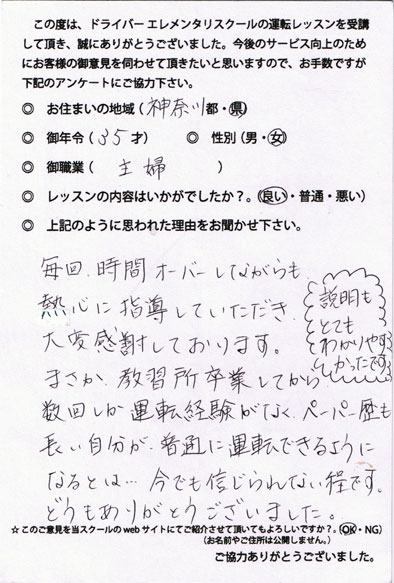 この度は、ドライバー エレメンタリスクールの運転レッスンを受講
して頂き、誠にありがとうございました。今後のサービス向上のため
にお客様の御意見を伺わせて頂きたいと思いますので、お手数ですが
下記のアンケートにご協力下さい。
◎ お住まいの地域 (神奈川都・県)
◎ 御年令 (35才) ◎ 性別 (男・女)
◎ 御職業 (主婦)
◎ レッスンの内容はいかがでしたか?。(良い・普通・悪い)
◎ 上記のように思われた理由をお聞かせ下さい。
毎回、時間オーバーしながらも
熱心に指導していただき
大変感謝しております。
説明も
とても
わかりやす
かったです
まさか、教習所卒業してから
数回しか運転経験がなく、ペーパー歴も
長い自分が、普通に運転できるように
なるとは… 今でも信じられない程です。
どうもありがとうございました。
☆このご意見を当スクールのwebサイトにてご紹介させて頂いてもよろしいですか?。(OK・NG)
(お名前やご住所は公開しません。)
ご協力ありがとうございました。